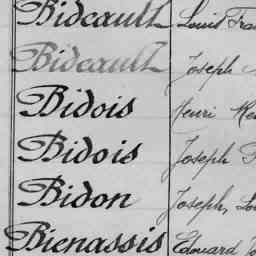 Bideault Louis
Bideault Joseph
Bidois Henri
Bidois Joseph
Bidon Joseph,
Bienassis Edouard